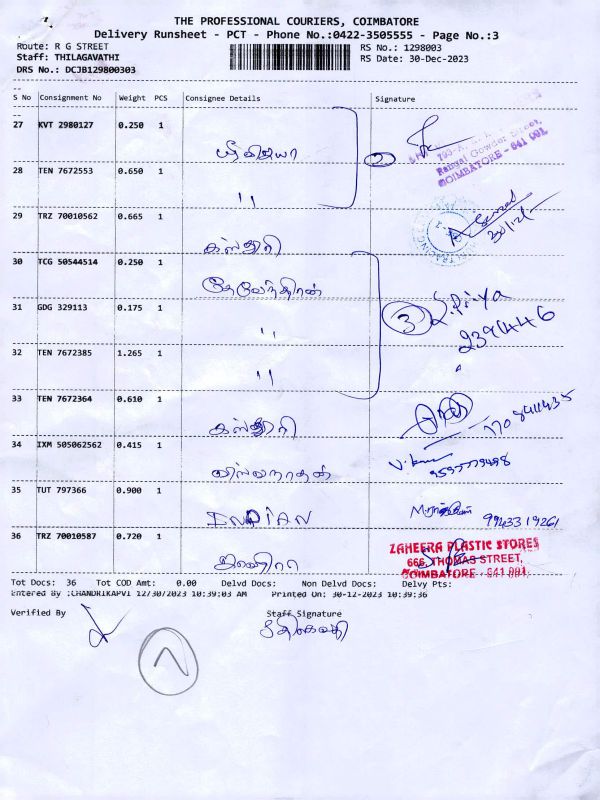 THE PROFESSIONAL COURIERS, COIMBATORE
Delivery Runsheet - PCT - Phone No.:0422-3505555 - Page No.:3
Route: R G STREET RS No.: 1298003
Staff: THILAGAVATHI RS Date: 30-Dec-2023
DRS No.: DCJB129800303
S No Consignment No Weight PCS Consignee Details Signature
27 KVT 2980127 0.250 1
Rangai Gowder Street,
COIMBATORE - 641 001.
28 TEN 7672553 0.650 1 "
29 TRZ 70010562 0.665 1 கஸ்தூரி
30 TCG 50544514 0.250 1 தேவேந்திரன்
31 GDG 329113 0.175 1 " 3 S.Priya
32 TEN 7672385 1.265 1 "
33 TEN 7672364 0.610 1 கஸ்தூரி
34 IXM 505062562 0.415 1 விஸ்வநாதன்
35 TUT 797366 0.900 1 INDIAN 9943319261
36 TRZ 70010587 0.720 1
ZAHEERA PLASTIC STORES
666, THOMAS STREET,
COIMBATORE - 641 001.
Tot Docs: 36 Tot COD Amt: 0.00 Delvd Docs: Non Delvd Docs: Delvy Pts:
Entered By :CHANDRIKAPVI 12/30/2023 10:39:03 AM Printed On: 30-12-2023 10:39:36
Verified By Staff Signature